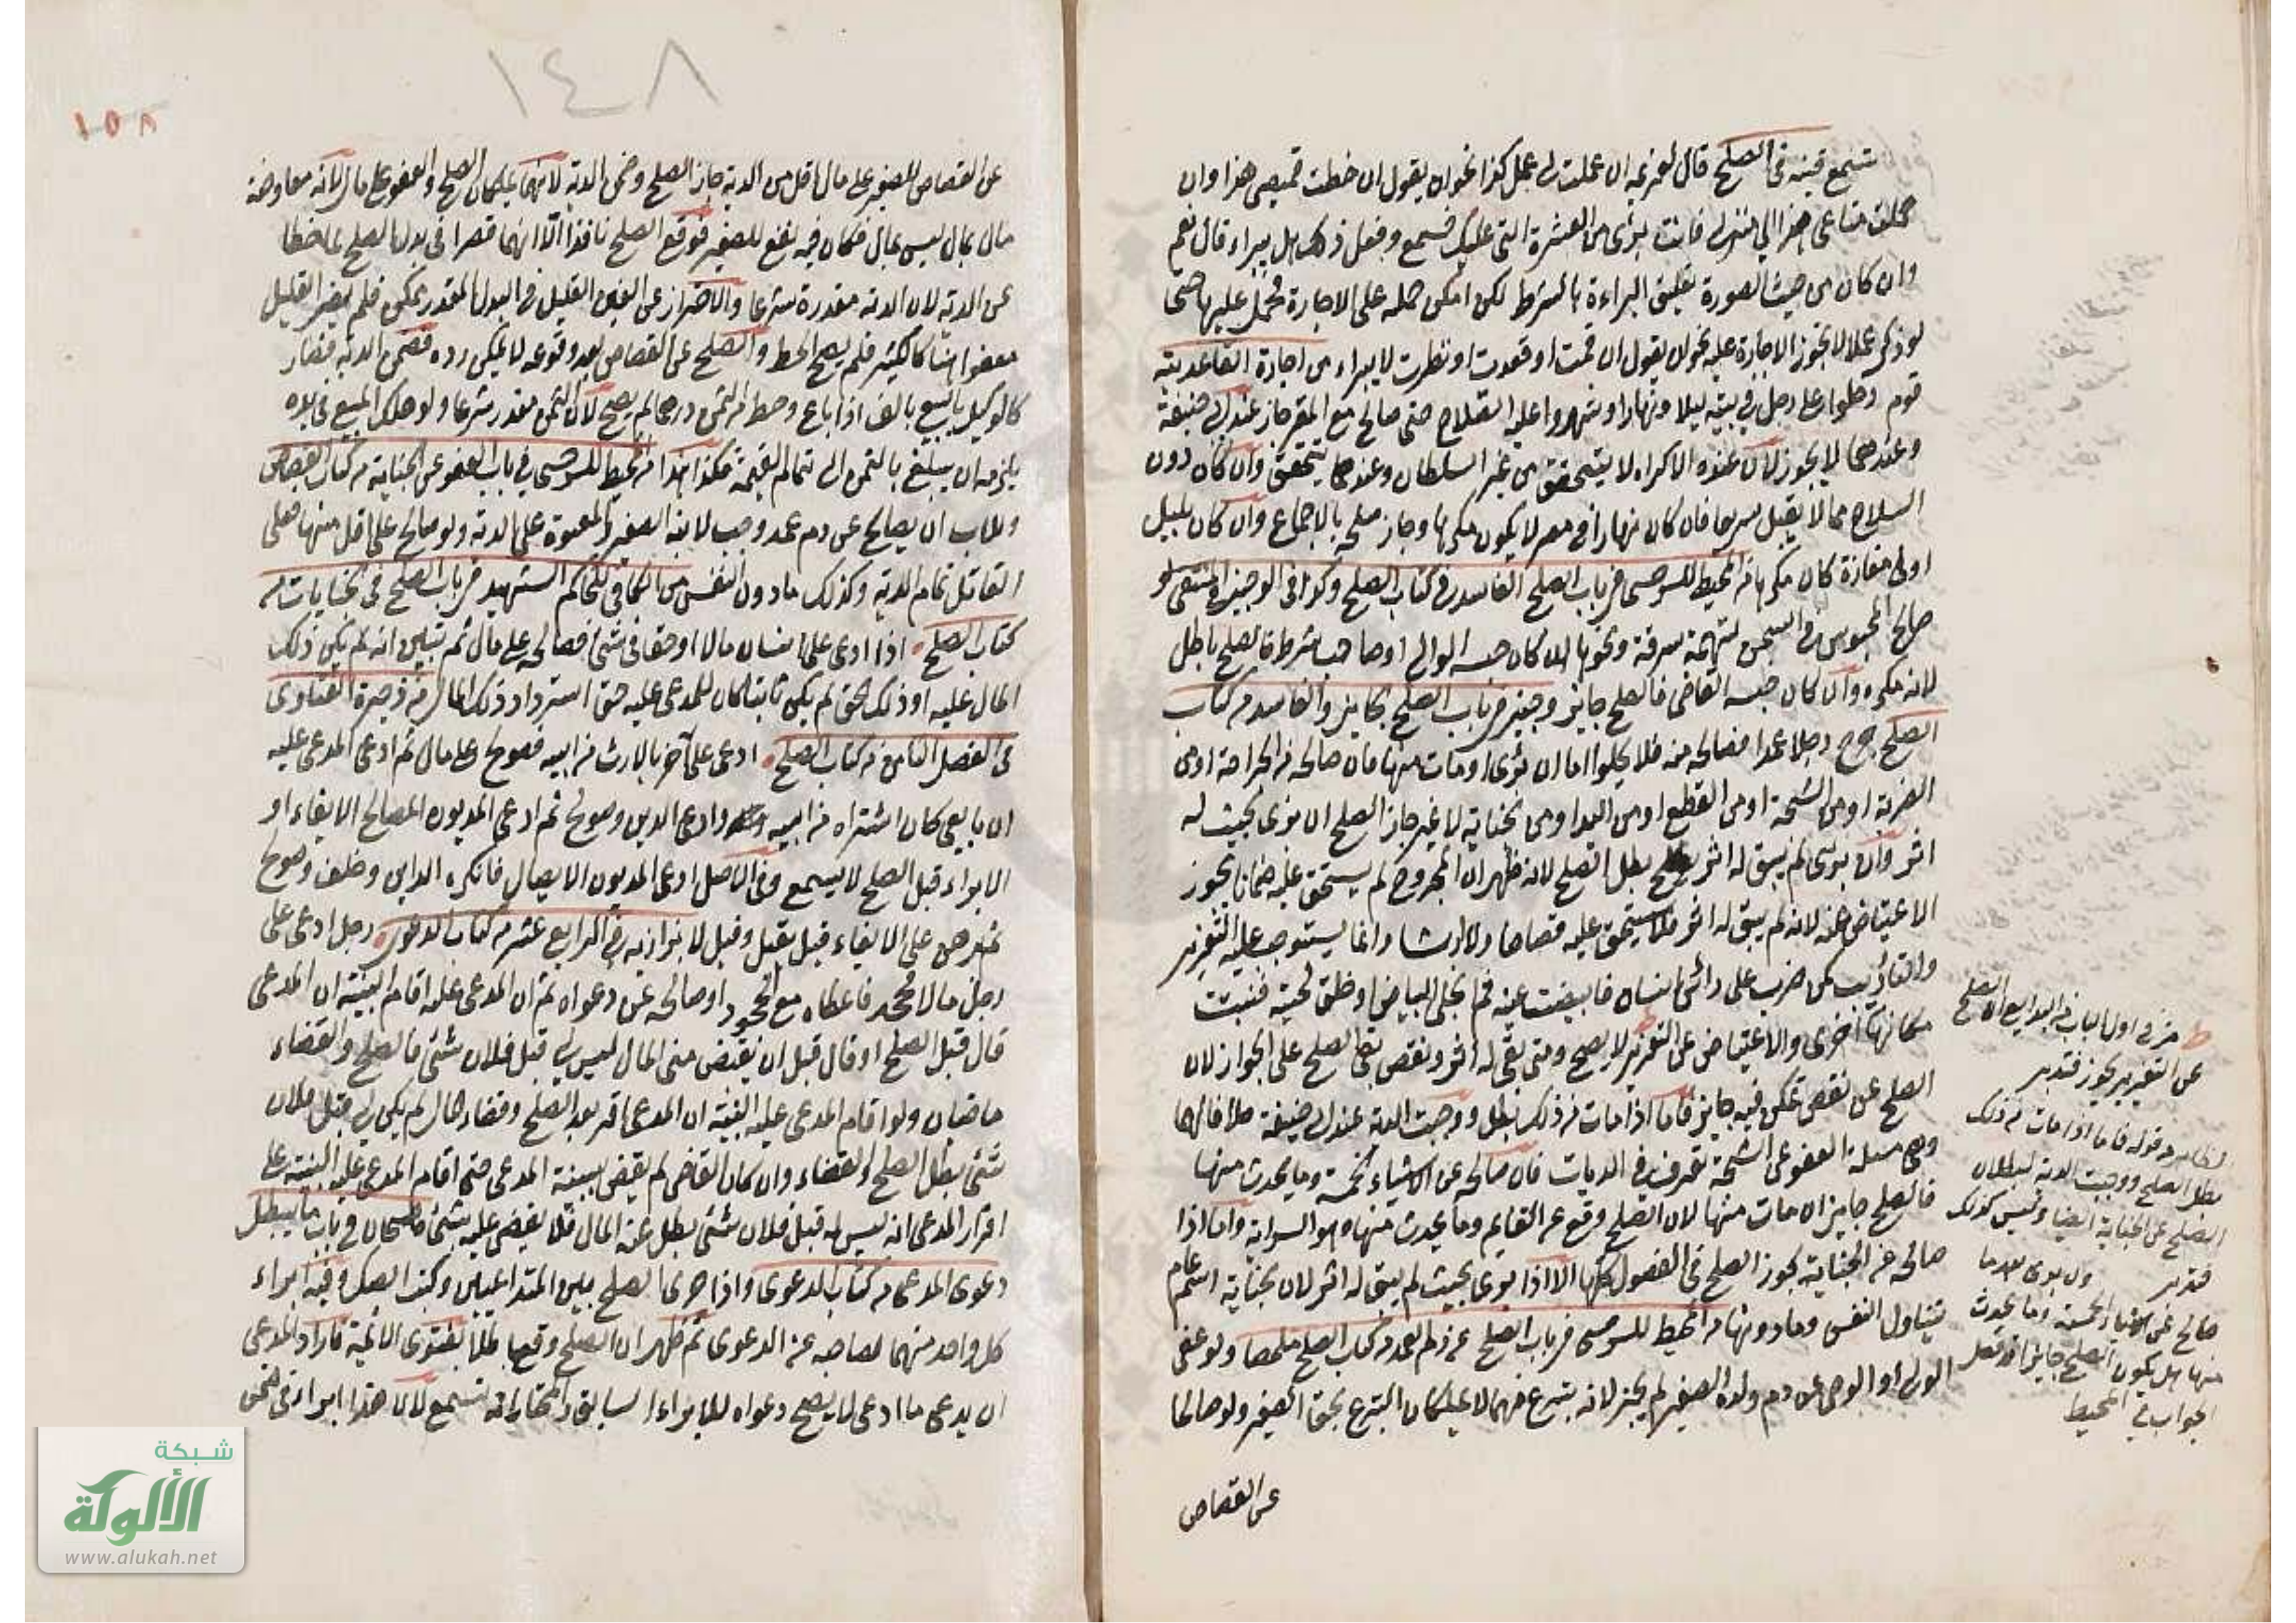 تسمع قنيه في الصلح قال لغريمه ان عملت لي عمل كذا نحو ان يقول ان خطت قميصي هذا وان
حملت متاعي هذا الي منزلي فانت برئ من العشرة التي عليك فسمع وفعل ذلك هل يبراء قال نعم
وان كان من حيث الصورة تعليق البراءة بالشرط لكن امكن حمله على الاجارة فحمل عليها حتى
لو ذكر عملا لا تجوز الاجارة عليه نحو ان يقول ان قمت او قعدت او نظرت لا يبراء من اجارة القاعدية
قوم دخلوا على رجل في بيته ليلا او نهارا وشهروا عليه السلاح حتى صالح مع المقر جاز عند ابي حنيفة
وعندهما لا يجوز لان عنده الاكراه لا يتحقق من غير السلطان وعندهما يتحقق وان كان دون
السلاح مما لا يقبل سريعا فان كان نهارا في مصر لا يكون مكرها وجاز صلحه بالاجماع وان كان بليل
او في مفازة كان مكرها من المحيط للسرخسي في باب الصلح الفاسد من كتاب الصلح وكذا في الوجيز المنتقى لو
صالح المحبوس في السجن لتهمة سرقة ونحوها ان كان حبسه الوالي او صاحب شرط فالصلح باطل
لانه مكره وان كان حبسه القاضي فالصلح جايز وجيز في باب الصلح الجايز والفاسد من كتاب
الصلح جرح رجلا عمدا فصالحه منه فلا يخلوا اما ان برئ او مات منها فان صالحه من الجراحة او من
الضربة او من الشجة او من القطع او من اليد او من الجناية لا غير جاز الصلح ان برئ بحيث له
اثر وان برئ لم يبق له اثر بطل الصلح لانه ظهر ان المجروح لم يستحق عليه ضمانا يجوز
الاعتياض عنه لانه لم يبق له اثر فلا يستحق عليه قصاصا ولا ارشا وانما يستوجب عليه التعزير
والتأديب كمن ضرب على رأس انسان فابيضت عينه ثم انجلى البياض او حلق لحيته فنبتت
مكانها اخرى والاعتياض عن التعزير لا يصح ومتى بقي له اثر ونقص بقي الصلح على الجواز لان
الصلح عن نقص تمكن فيه جايز فاما اذا مات من ذلك بطل ووجبت الدية عند ابي حنيفة خلافا لهما
وهي مسئلة العفو عن الشجة تعرف في الديات فان صالحه عن الاشياء الخمسة وما يحدث منها
فالصلح جايز ان مات منها لان الصلح وقع عن القايم وما يحدث منها وهو السراية واما اذا
صالحه عن الجناية يجوز الصلح في الفصول كلها الا اذا برئ بحيث لم يبق له اثر لان الجناية اسم عام
تتناول النفس وما دونها من المحيط للسرخسي في باب الصلح عن دم العمد من كتاب الصلح ملخصا ولو عفى
الولي او الوصي عن دم ولده الصغير لم يجز لانه تبرع منهما لا يملكان التبرع بحق الصغير ولو صالحا
عن القصاص
ط مر في اول الباب في البدايع ان الصلح
عن التعزير يجوز فتدبر
قوله فاما اذا مات من ذلك
بطل الصلح ووجبت الدية لبطلان
الصلح عن الجناية ايضا وليس كذلك
فتدبر
ولو برئ بعد ما
صالح عن الاشياء الخمسة وما يحدث
منها هل يكون الصلح جايزا فصل
الجواب في المحيط
١٤٨
١٥٨
عن القصاص للصغير على مال اقل من الدية جاز الصلح وضمن الدية لانهما يملكان الصلح والعفو على مال لانه معاوضة
مال بمال ليس بمال فكان فيه نفع للصغير فوقع الصلح نافذا الا انهما قصرا في بدل الصلح بما حطا
عن الدية لان الدية مقدرة شرعا والاحتراز عن الغبن القليل في البدل المقدر ممكن فلم يصر القليل
معفوا هنا كالكثير فلم يصح الحط والصلح عن القصاص بعد وقوعه لا يمكن رده فضمن الدية فصار
كالوكيل بالبيع بالف اذا باع وحط من الثمن درهما لم يصح لان الثمن مقدر شرعا ولو هلك المبيع في يده
يلزمه ان يبلغ بالثمن الى تمام القيمة فكذا هذا من المحيط للسرخسي في باب العفو عن الجناية من كتاب القصاص
وللاب ان يصالح عن دم عمد وجب لابنه الصغير والمعتوه على الدية ولو صالح على اقل منها فعلى
القاتل تمام الدية وكذلك ما دون النفس من الكافي للحاكم الشهيد في باب الصلح في الجنايات من
كتاب الصلح اذا ادعى على انسان مالا او حقا في شئ فصالحه على مال ثم تبين انه لم يكن ذلك
المال عليه او ذلك الحق لم يكن ثابتا كان للمدعى عليه حق استرداد ذلك المال من ذخيرة الفتاوى
في الفصل الثامن من كتاب الصلح ادعى على آخر بالارث من ابيه فصولح على مال ثم ادعى المدعى عليه
ان بايعي كان اشتراه من ابيه وادعى الدين وصولح ثم ادعى المديون المصالح الايفاء او
الابراء قبل الصلح لا يسمع وفي الاصل ادعى المديون الايصال فانكره الداين وحلف وصولح
ثم برهن على الايفاء قبل يقبل وقيل لا بزازيه في الرابع عشر من كتاب الدعوى رجل ادعى على
رجل مالا فجحد فاعطاه مع الجحود او صالحه عن دعواه ثم ان المدعى عليه اقام البينة ان المدعي
قال قبل الصلح او قال قبل ان يقبض مني المال ليس لي قبل فلان شئ فالصلح والقضاء
ماضيان ولو اقام المدعى عليه البينة ان المدعي اقر بعد الصلح وقضاء المال لم يكن لي قبل فلان
شئ بطل الصلح والقضاء وان كان القاضي لم يقض ببينة المدعي حتى اقام المدعى عليه البينة على
اقرار المدعي انه ليس له قبل فلان شئ بطل عنه المال فلا يقضى عليه بشئ قاضيخان في باب ما يبطل
دعوى المدعي من كتاب الدعوى واذا جرى الصلح بين المتداعيين وكتب الصك وفيه ابراء
كل واحد منهما صاحبه عن الدعوى ثم ظهر ان الصلح وقع باطلا بفتوى الائمة فاراد المدعي
ان يدعي ما ادعى لا يصح دعواه للابراء السابق والمختار انه تسمع لان هذا ابراء في ضمن
شبكة
الألوكة
www.alukah.net